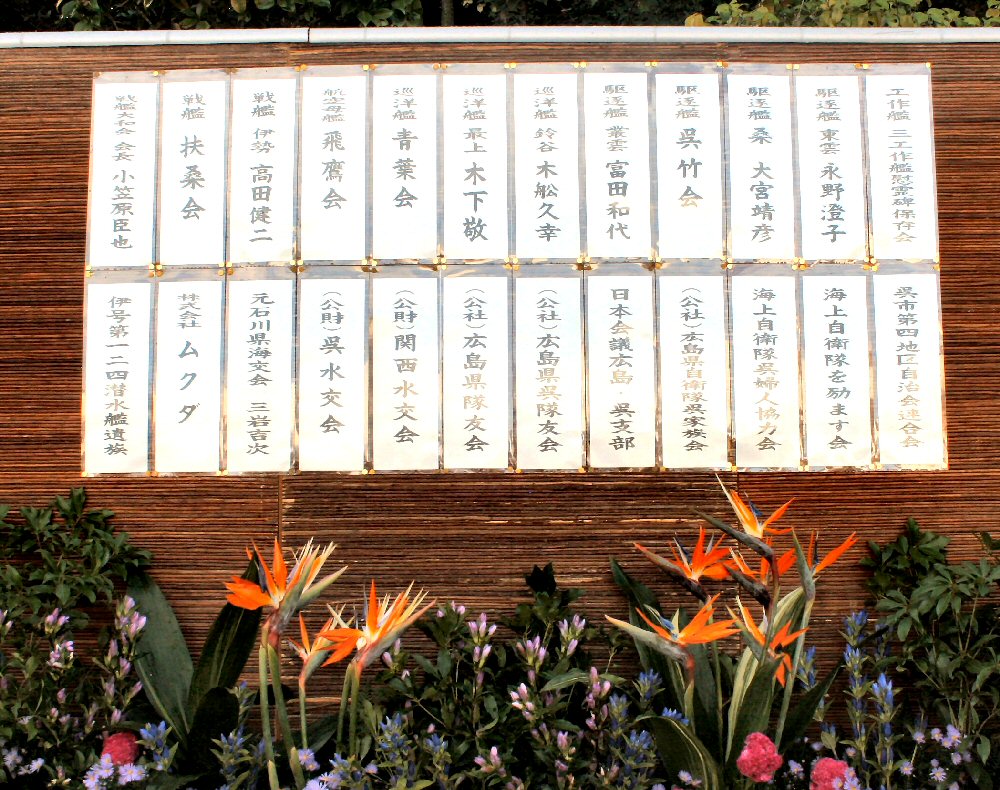 戦艦大和会 会長 小笠原臣也
戦艦 扶桑会
戦艦 伊勢 高田健二
航空母艦 飛鷹会
巡洋艦 青葉会
巡洋艦 最上 木下敬
巡洋艦 鈴谷 木舩久幸
駆逐艦 叢雲 富田和代
駆逐艦 呉竹会
駆逐艦 桑 大宮靖彦
駆逐艦 東雲 永野澄子
工作艦 三工作艦慰霊碑保存会
伊号第一二四潜水艦遺族
株式会社 ムクダ
元石川県海交会 三岩吉次
(公財)呉水交会
(公財)関西水交会
(公社)広島県隊友会
(公社)広島県呉隊友会
日本会議広島 呉支部
(公社)広島県自衛隊呉家族会
海上自衛隊呉婦人協力会
海上自衛隊を励ます会
呉市第四地区自治会連合会